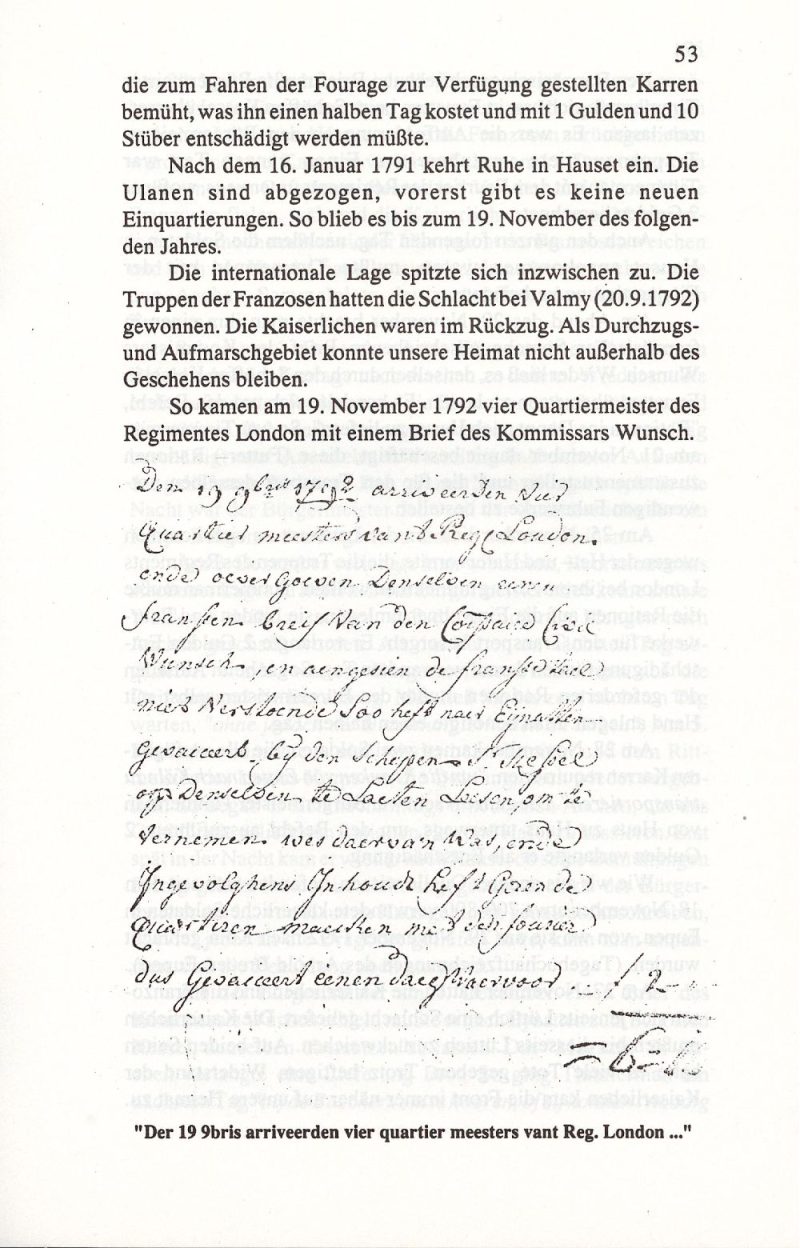 53
die zum Fahren der Fourage zur Verfügung gestellten Karren
bemüht, was ihn einen halben Tag kostet und mit 1 Gulden und 10
Stüber entschädigt werden müßte.
Nach dem 16. Januar 1791 kehrt Ruhe in Hauset ein. Die
Ulanen sind abgezogen, vorerst gibt es keine neuen
Einquartierungen. So blieb es bis zum 19. November des folgen-
den Jahres.
Die internationale Lage spitzte sich inzwischen zu. Die
Truppen der Franzosen hatten die Schlacht bei Valmy (20.9.1792)
gewonnen. Die Kaiserlichen waren im Rückzug. Als Durchzugs-
und Aufmarschgebiet konnte unsere Heimat nicht außerhalb des
Geschehens bleiben.
So kamen am 19. November 1792 vier Quartiermeister des
Regimentes London mit einem Brief des Kommissars Wunsch.
Den 19 9bris 1792 arriveerden vier
Quartier meesters vant Reg London.
ende overgeven Denselven eenen
fransen breif Van den
Wunsch, en aengesien de franse
niet Verstoende Soo heft naer Eijnatten
gevaceert bij den Schepen
op Denselven te Laeten Lesen, om te
Vernemen wes daervan Was, ende
Ingevolghens Inhoudt heft Gaen de
Quartiren maecken met den fourier
dus Gevaceert eenen daeg Waervoor
"Der 19 9bris arriveerden vier quartier meesters vant Reg. London ..."